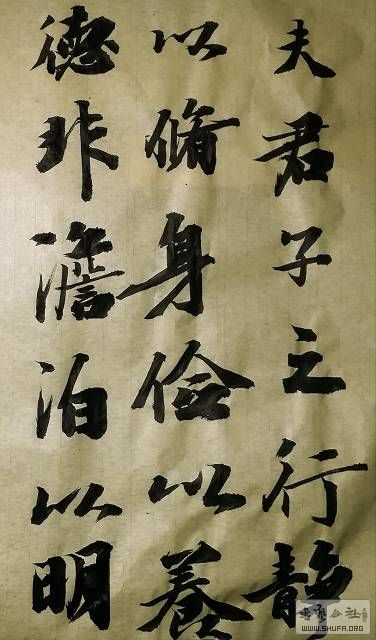 夫君子之行静
以脩身俭以養
德非澹泊以明
WWW.SHUFA.ORG